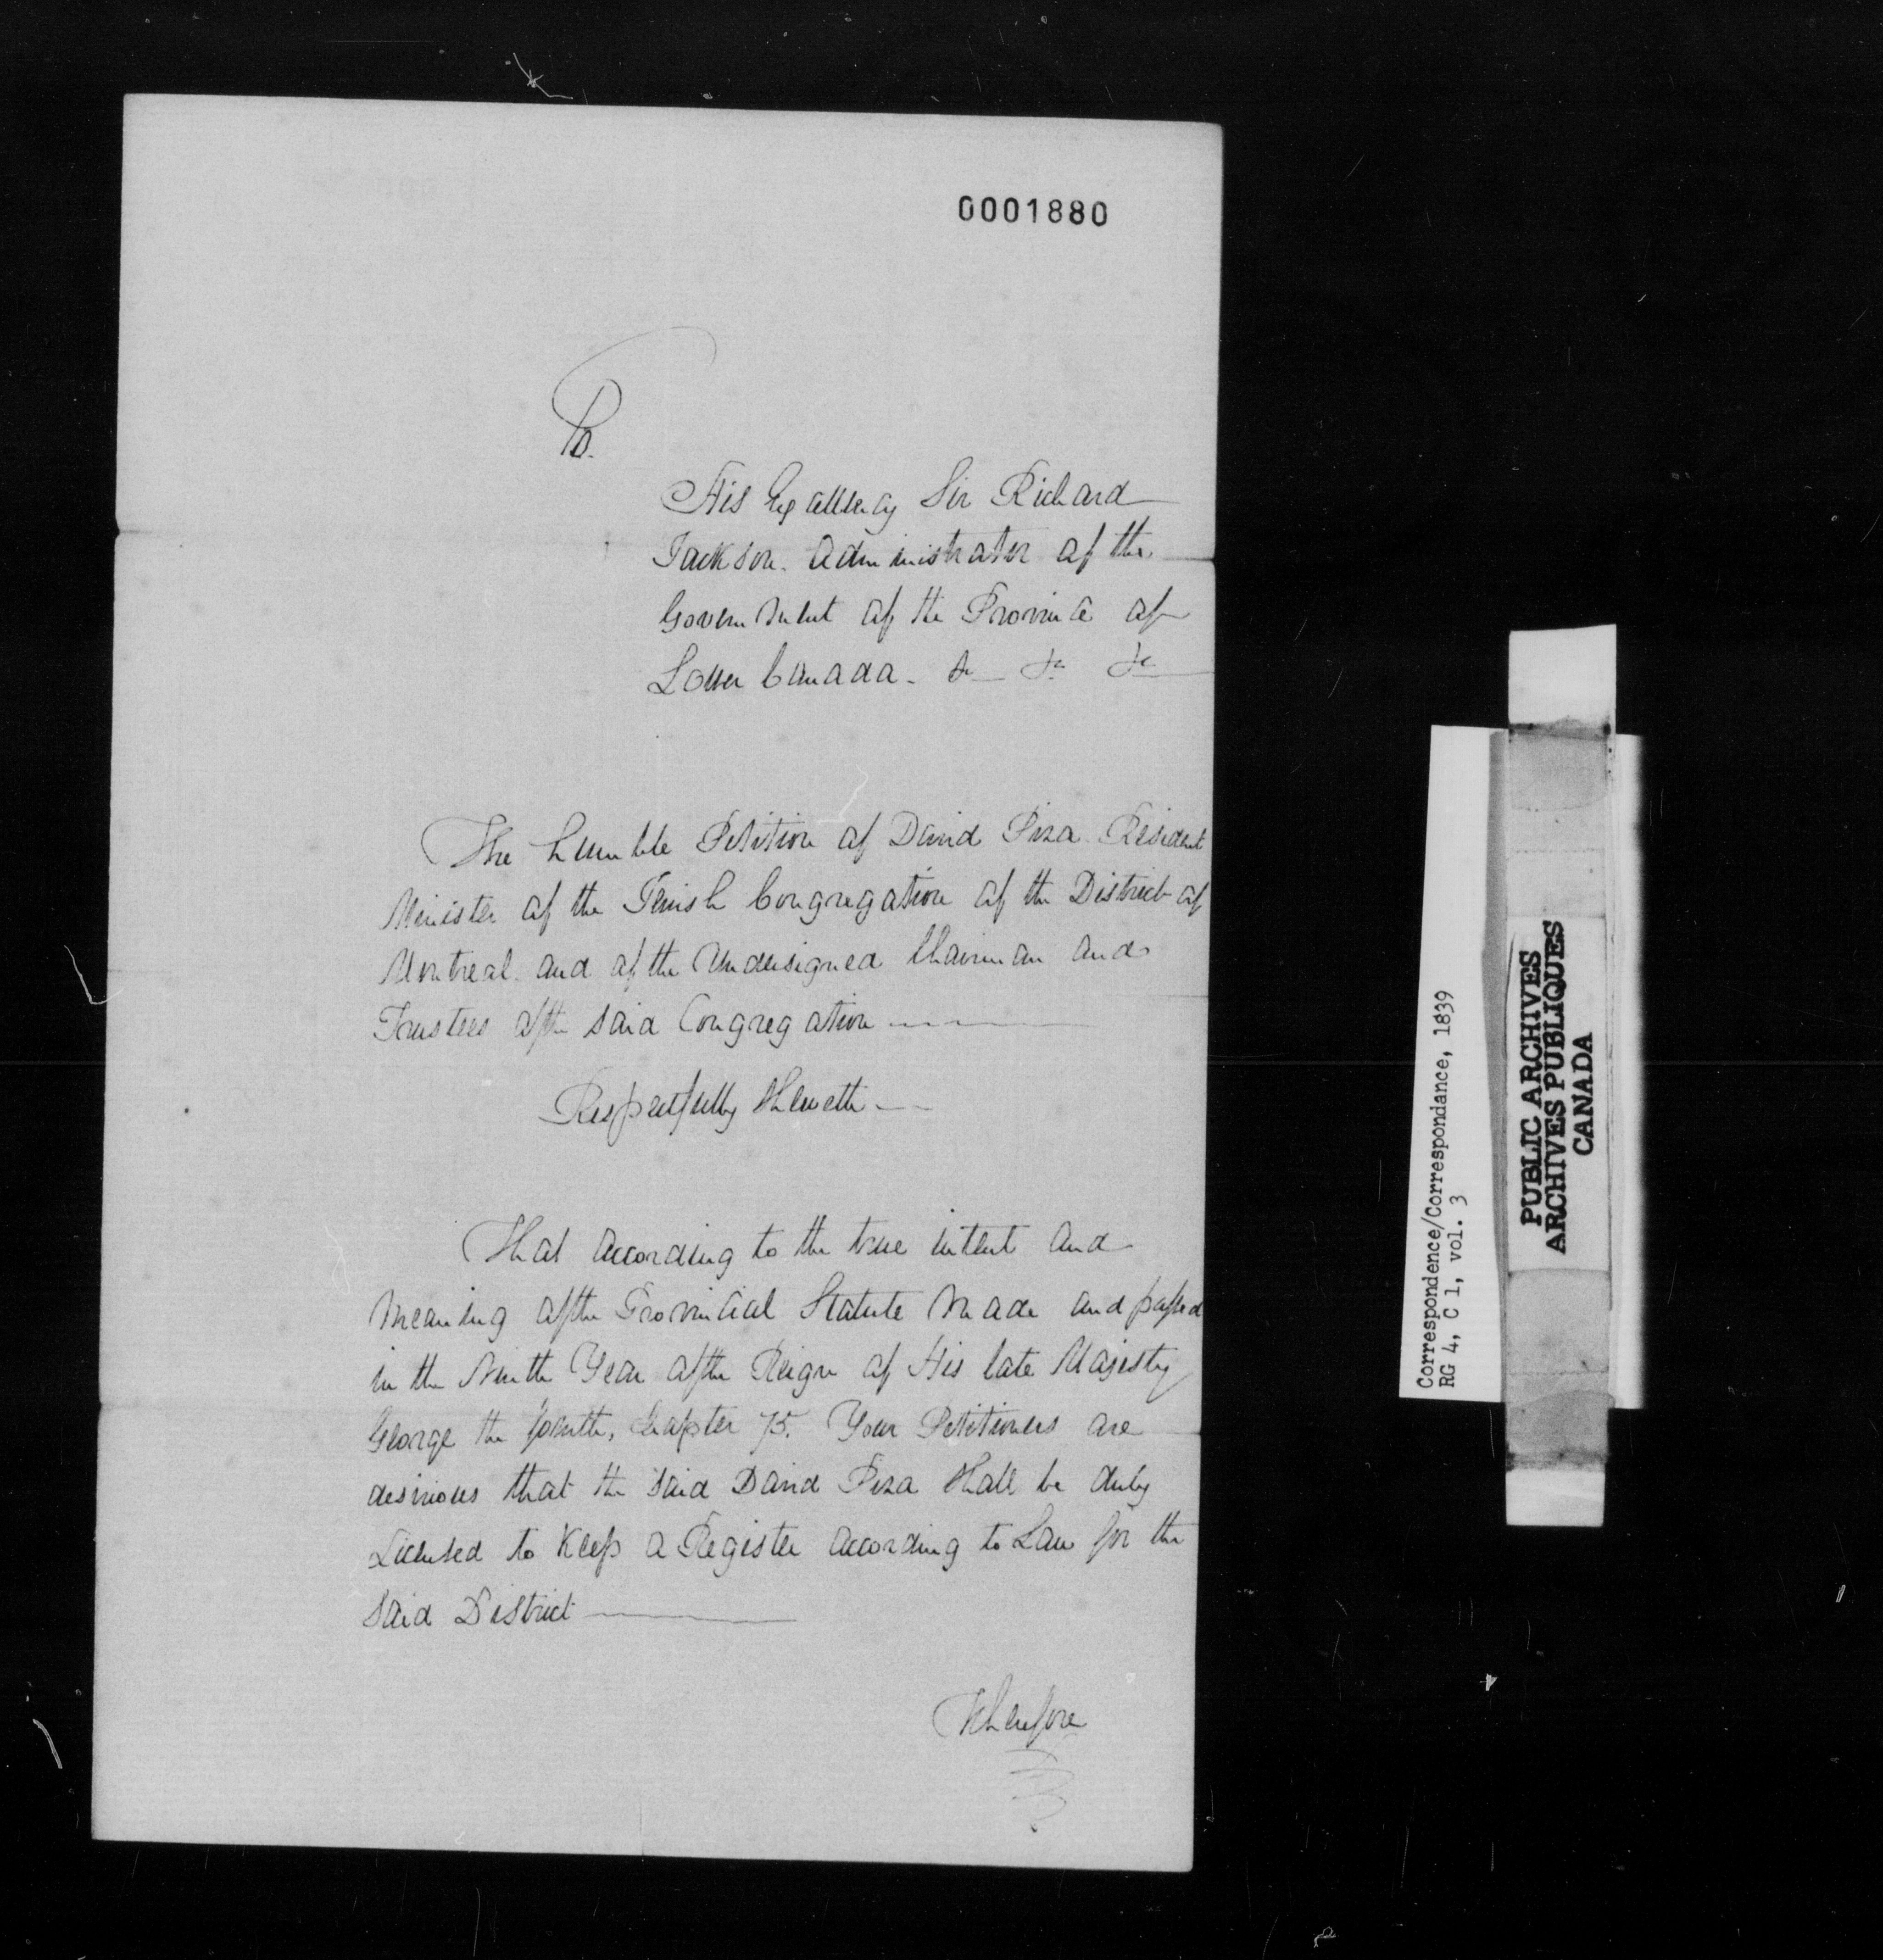 0001880
To.
His Excellency Sir Richard
Jackson. Administrator of the
Government of the Province of
Lower Canada. &c &c &c
The humble Petition of David Piza Resident
Minister of the Jewish Congregation of the District of
Montreal and of the Undersigned Chairman and
Trustees of the said Congregation
Respectfully Sheweth
That according to the true intent and
meaning of the Provincial Statute made and passed
in the Ninth Year of the Reign of His late Majesty
George the fourth, Chapter 75. Your Petitioners are
desirious that the said David Piza shall be duly
Licensed to Keep a Register according to Law for the
said District
Wherefore
Correspondence/Correspondance, 1839
RG 4, C 1, vol. 3
PUBLIC ARCHIVES
ARCHIVES PUBLIQUES
CANADA